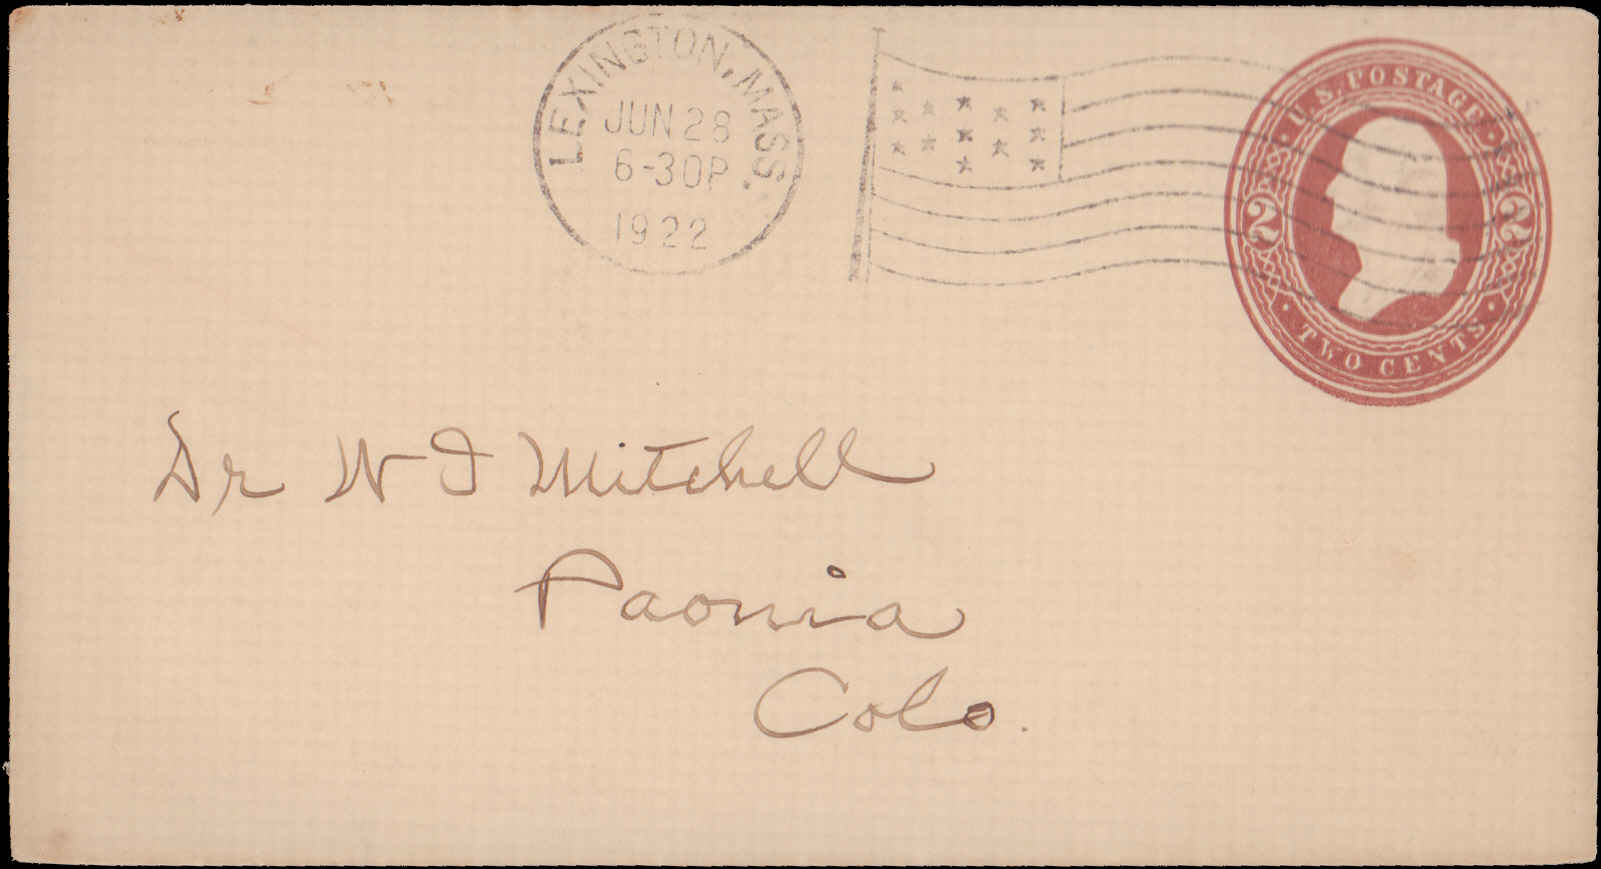 LEXINGTON, MASS.
JUN 28
6-30P
1922
U.S. POSTAGE
2 2
TWO CENTS
Dr W I Mitchell
Paonia
Colo.